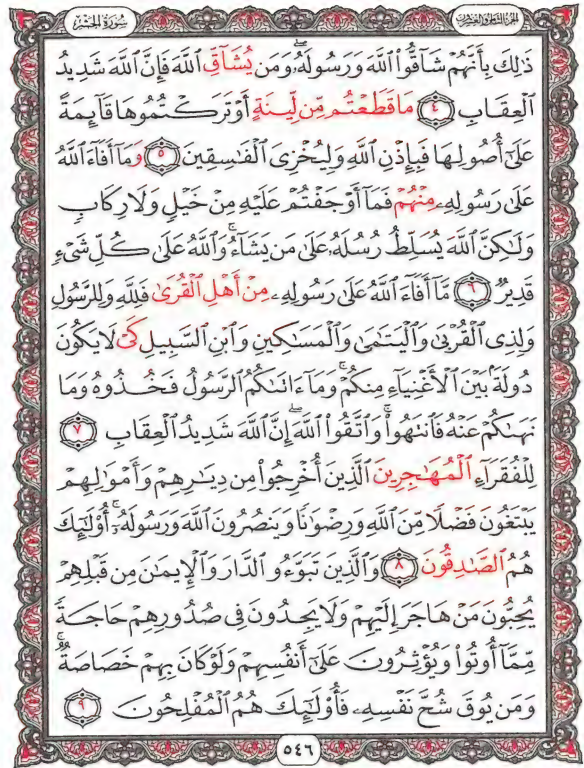 سُورَةُ الحَشْرِ
الجزء الثامن والعشرون
ذَٰلِكَ بِأَنَّهُمْ شَآقُّوا۟ ٱللَّهَ وَرَسُولَهُۥ ۖ وَمَن يُشَآقِّ ٱللَّهَ فَإِنَّ ٱللَّهَ شَدِيدُ
ٱلْعِقَابِ ٤ مَا قَطَعْتُم مِّن لِّينَةٍ أَوْ تَرَكْتُمُوهَا قَآئِمَةً
عَلَىٰٓ أُصُولِهَا فَبِإِذْنِ ٱللَّهِ وَلِيُخْزِىَ ٱلْفَـٰسِقِينَ ٥ وَمَآ أَفَآءَ ٱللَّهُ
عَلَىٰ رَسُولِهِۦ مِنْهُمْ فَمَآ أَوْجَفْتُمْ عَلَيْهِ مِنْ خَيْلٍ وَلَا رِكَابٍ
وَلَـٰكِنَّ ٱللَّهَ يُسَلِّطُ رُسُلَهُۥ عَلَىٰ مَن يَشَآءُ ۚ وَٱللَّهُ عَلَىٰ كُلِّ شَىْءٍ
قَدِيرٌ ٦ مَّآ أَفَآءَ ٱللَّهُ عَلَىٰ رَسُولِهِۦ مِنْ أَهْلِ ٱلْقُرَىٰ فَلِلَّهِ وَلِلرَّسُولِ
وَلِذِى ٱلْقُرْبَىٰ وَٱلْيَتَـٰمَىٰ وَٱلْمَسَـٰكِينِ وَٱبْنِ ٱلسَّبِيلِ كَىْ لَا يَكُونَ
دُولَةًۢ بَيْنَ ٱلْأَغْنِيَآءِ مِنكُمْ ۚ وَمَآ ءَاتَىٰكُمُ ٱلرَّسُولُ فَخُذُوهُ وَمَا
نَهَىٰكُمْ عَنْهُ فَٱنتَهُوا۟ ۚ وَٱتَّقُوا۟ ٱللَّهَ ۖ إِنَّ ٱللَّهَ شَدِيدُ ٱلْعِقَابِ ٧
لِلْفُقَرَآءِ ٱلْمُهَـٰجِرِينَ ٱلَّذِينَ أُخْرِجُوا۟ مِن دِيَـٰرِهِمْ وَأَمْوَٰلِهِمْ
يَبْتَغُونَ فَضْلًا مِّنَ ٱللَّهِ وَرِضْوَٰنًا وَيَنصُرُونَ ٱللَّهَ وَرَسُولَهُۥٓ ۚ أُو۟لَـٰٓئِكَ
هُمُ ٱلصَّـٰدِقُونَ ٨ وَٱلَّذِينَ تَبَوَّءُو ٱلدَّارَ وَٱلْإِيمَـٰنَ مِن قَبْلِهِمْ
يُحِبُّونَ مَنْ هَاجَرَ إِلَيْهِمْ وَلَا يَجِدُونَ فِى صُدُورِهِمْ حَاجَةً
مِّمَّآ أُوتُوا۟ وَيُؤْثِرُونَ عَلَىٰٓ أَنفُسِهِمْ وَلَوْ كَانَ بِهِمْ خَصَاصَةٌ ۚ
وَمَن يُوقَ شُحَّ نَفْسِهِۦ فَأُو۟لَـٰٓئِكَ هُمُ ٱلْمُفْلِحُونَ ٩
٥٤٦